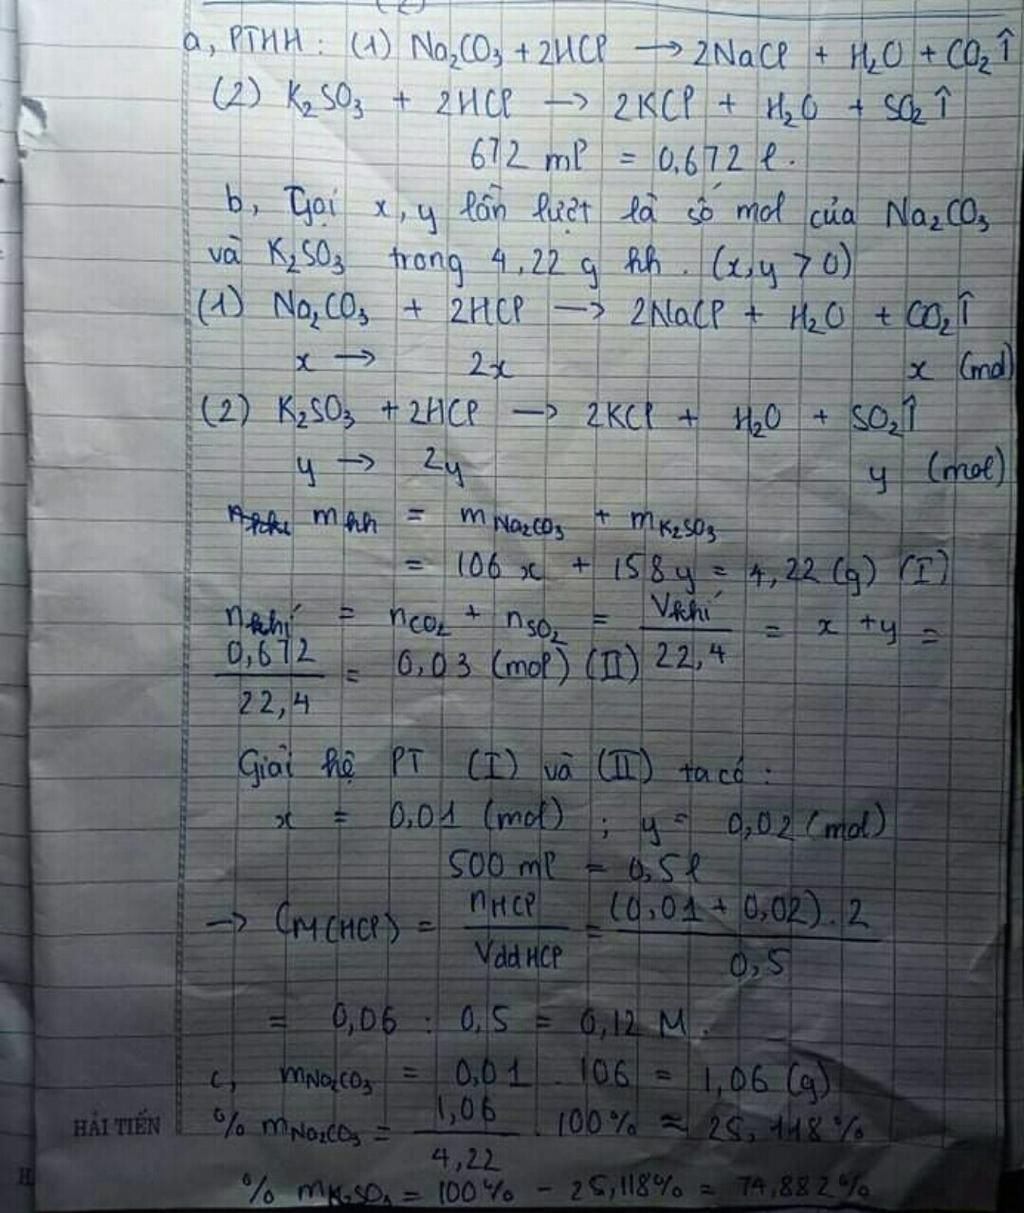 a, PTHH : (1) Na₂CO₃ + 2HCl → 2NaCl + H₂O + CO₂↑
(2) K₂SO₃ + 2HCl → 2KCl + H₂O + SO₂↑
672 ml = 0,672 l.
b, Gọi x, y lần lượt là số mol của Na₂CO₃
và K₂SO₃ trong 4,22 g hh. (x,y > 0)
(1) Na₂CO₃ + 2HCl → 2NaCl + H₂O + CO₂↑
x → 2x x (mol)
(2) K₂SO₃ + 2HCl → 2KCl + H₂O + SO₂↑
y → 2y y (mol)
mhh = mNa₂CO₃ + mK₂SO₃
= 106x + 158y = 4,22 (g) (I)
nkhí = nCO₂ + nSO₂ = Vkhí / 22,4 = x + y =
0,672 / 22,4 = 0,03 (mol) (II)
Giải hệ PT (I) và (II) ta có :
x = 0,01 (mol) ; y = 0,02 (mol)
500 ml = 0,5 l
→ CM(HCl) = nHCl / VddHCl = (0,01 + 0,02).2 / 0,5
= 0,06 : 0,5 = 0,12 M.
c, mNa₂CO₃ = 0,01 . 106 = 1,06 (g)
% mNa₂CO₃ = 1,06 / 4,22 . 100% ≈ 25,118%
% mK₂SO₃ = 100% - 25,118% = 74,882%
HẢI TIẾN